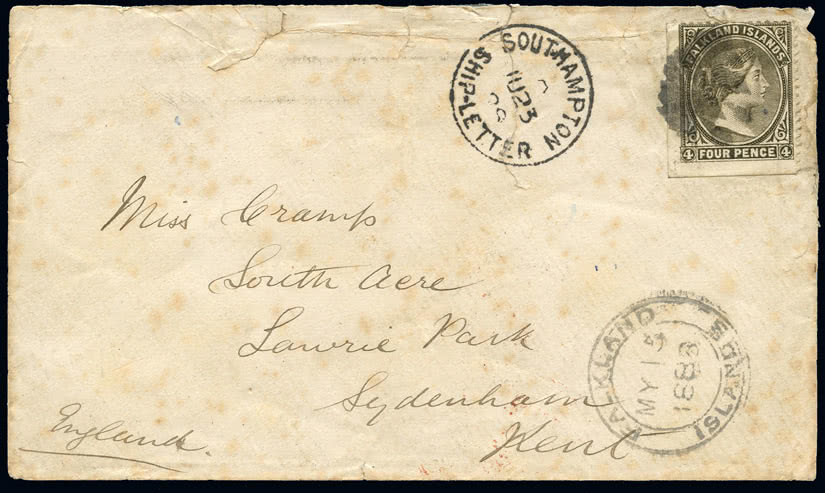 SOUTHAMPTON
SHIP-LETTER
JU 23
88
FALKLAND ISLANDS
4 FOUR PENCE 4
Miss Cramp
South Acre
Lawrie Park
Sydenham
Kent
England.
FALKLAND ISLANDS
MY 15
1888